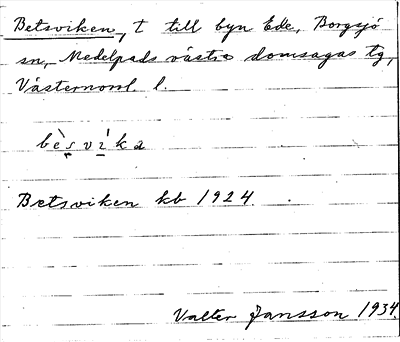 Betsviken, t till byn Ede, Borgsjö
sn, Medelpads västra domsagas tg,
Västernorrl. l.
bèsvíka
Betsviken kb 1924.
Valter Jansson 1934.